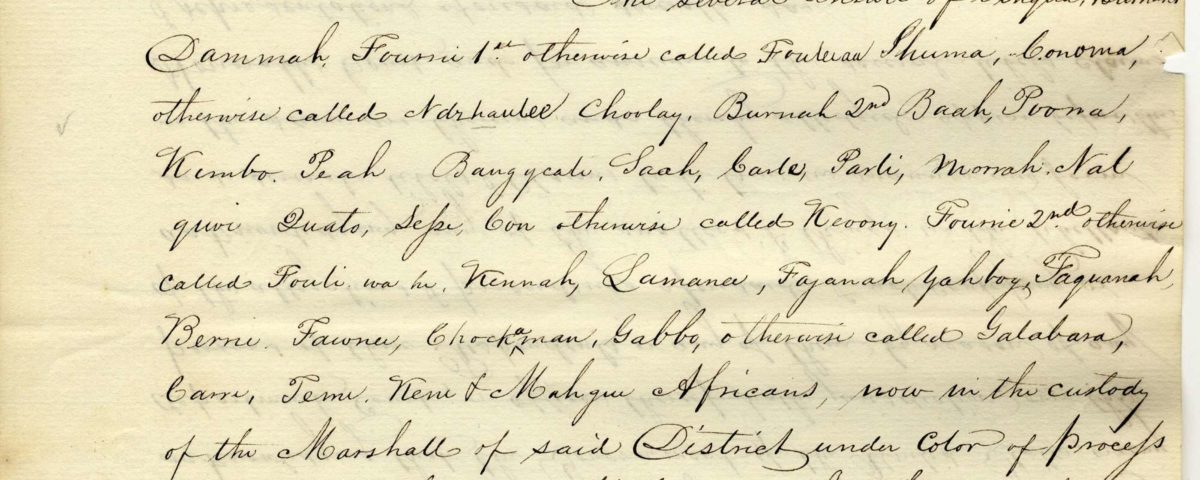 The several answer of Cinque, Burnah
Dammah, Fourrie 1st otherwise called Fouleaa Shuma, Conoma,
otherwise called Ndzhaulee Choolay, Burnah 2nd Baah, Poona,
Kimbo. Peah Bangyeate, Saah, Carle, Parli, Morrah. Nal
quivi Quato, Sesse, Con otherwise called Kevony. Fourrie 2nd. otherwise
called Fouli. wa he, Kennah, Lamana, Fajanah Yahboy, Faquanah,
Berrie. Fawnee, Chockaman, Gabbo, otherwise called Galabara,
Carre, Teme. Kene & Mahgue Africans, now in the custody
of the Marshall of said District under Color of process